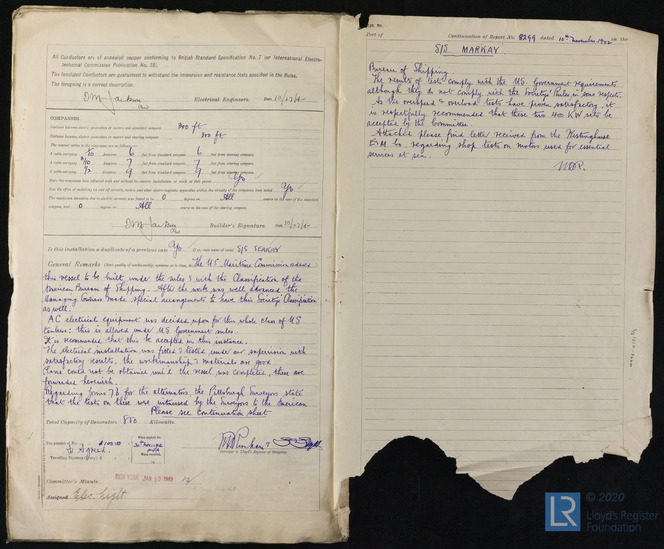 All Conductors are of annealed copper conforming to British Standard Specification No. 7 (or International Electro-
technical Commission Publication No. 28).
The Insulated Conductors are guaranteed to withstand the immersion and resistance tests specified in the Rules.
The foregoing is a correct description.
Electrical Engineers. Date 10/23/42
COMPASSES.
Distance between electric generators or motors and standard compass 300 ft
Distance between electric generators or motors and steering compass 300 ft
The nearest cables to the compasses are as follows:—
A cable carrying Ampères 6 feet from standard compass 6 feet from steering compass.
A cable carrying Ampères 7 feet from standard compass 7 feet from steering compass.
A cable carrying Ampères 9 feet from standard compass 9 feet from steering compass.
Have the compasses been adjusted with and without the electric installation at work at full power Yes
Has the effect of switching on and off circuits, motors and other electro-magnetic apparatus within the vicinity of the compasses been tested Yes
The maximum deviation due to electric currents was found to be 0 degrees on All course in the case of the standard
compass, and 0 degrees on All course in the case of the steering compass.
Builder's Signature. Date 10/23/42
Is this installation a duplicate of a previous case Yes If so, state name of vessel S/S SEAKAY
General Remarks The U.S. Maritime Commission ordered
this vessel to be built under the rules & with the Classification of the
American Bureau of Shipping. After the work was well advanced the
Managing Owners made special arrangements to have this Society's Classification
as well.
AC electrical equipment was decided upon for this whole class of US
tankers: this is allowed under US Government rules.
It is recommended that this be accepted in this instance.
The electrical installation was fitted & tested under our supervision with
satisfactory results, the workmanship & materials are good.
Plans could not be obtained until the vessel was completed, these are
forwarded herewith.
Regarding forms 7B for the alternators, the Pittsburgh Surveyors state
that the tests on these were witnessed by the Surveyors to the American
Please see continuation sheet
Total Capacity of Generators 880 Kilowatts.
Surveyor to Lloyd's Register of Shipping.
Committee's Minute NEW YORK JAN 13 1943
Assigned Elec. Light
Port of Continuation of Report No. 8299 dated 10th November, 1942 on the
S/S MARKAY
Bureau of Shipping.
The results of tests comply with the U.S. Government requirements
although they do not comply with the Society's Rules in some respects.
As the overspeed & overload tests have proven satisfactory, it
is respectfully recommended that these two 440 KW sets be
accepted by the Committee.
Attached please find letter received from the Westinghouse
E & M Co. regarding shop tests on motors used for essential
services at sea.
LR
© 2020
Lloyd's Register
Foundation